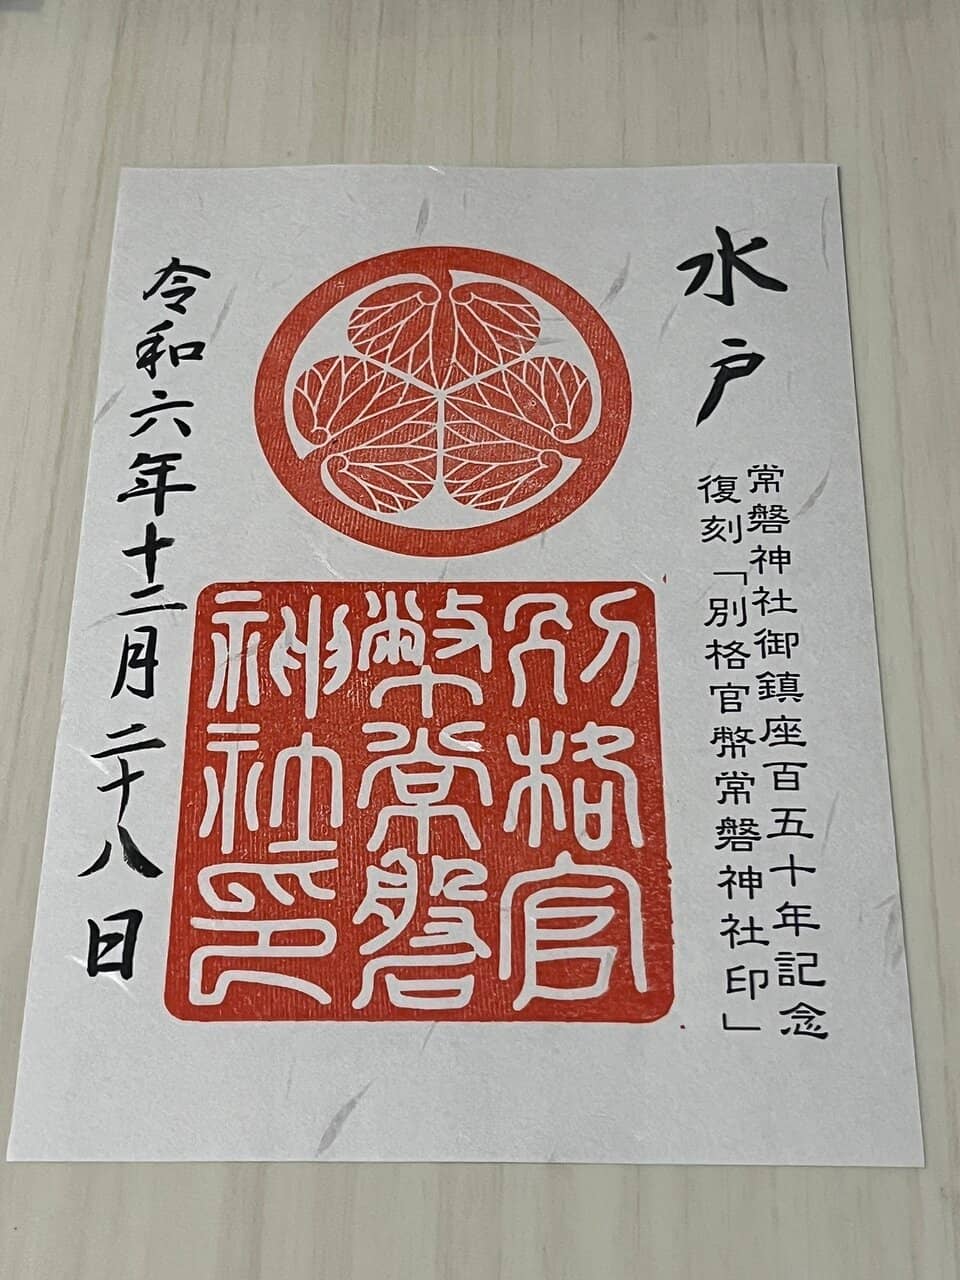 水戸
常磐神社御鎮座百五十年記念
復刻「別格官幣常磐神社印」
別格官
幣常磐
神社印
令和六年十二月二十八日